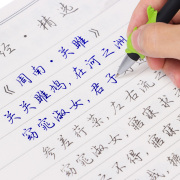 经·精选
《周南·关雎》
关关雎鸠,在河之洲
窈窕淑女,君子
参差荇菜,左右流
窈窕淑女,寤寐
之不得,寤寐